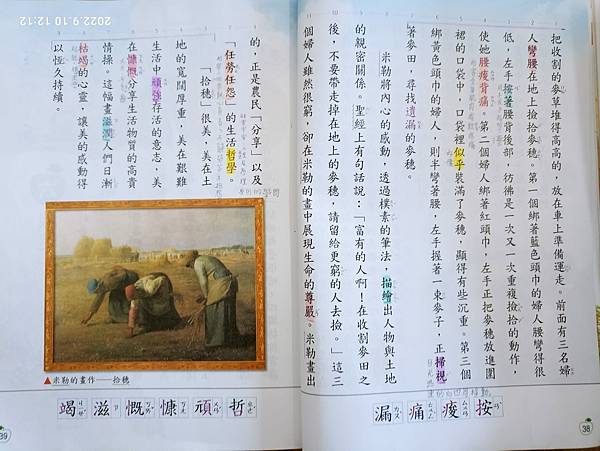 2022.9.10 12:12
一把收割的麥草堆得高高的，放在車上準備運走。前面有三名婦
人彎腰在地上撿拾麥穗。第一個綁著藍色頭巾的婦人腰彎得很
低，左手按著腰背後部，彷彿是一次又一次重複撿拾的動作，
使她腰痠背痛。第二個婦人綁著紅頭巾，左手正把麥穗放進圍
裙的口袋中，口袋裡似乎裝滿了麥穗，顯得有些沉重。第三個
綁黃色頭巾的婦人，則半彎著腰，左手握著一束麥子，正掃視
著麥田，尋找遺漏的麥穗。
米勒將內心的感動，透過樸素的筆法，描繪出人物與土地
的親密關係。聖經上有句話說：「富有的人啊！在收割麥田之
後，不要帶走掉在地上的麥穗，請留給更窮的人去撿。」這三
個婦人雖然很窮，卻在米勒的畫中展現生命的尊嚴。米勒畫出
按 痠 痛 漏
38
的，正是農民「分享」以及
「任勞任怨」的生活哲學。
「拾穗」很美，美在土
地的寬闊厚重，美在艱難
生活中頑強存活的意志，美
在慷慨分享生活物質的高貴
情操。這幅畫滋潤人們日漸
枯竭的心靈，讓美的感動得
以恆久持續。
▲米勒的畫作——拾穗
哲 頑 慷 慨 滋 竭
39